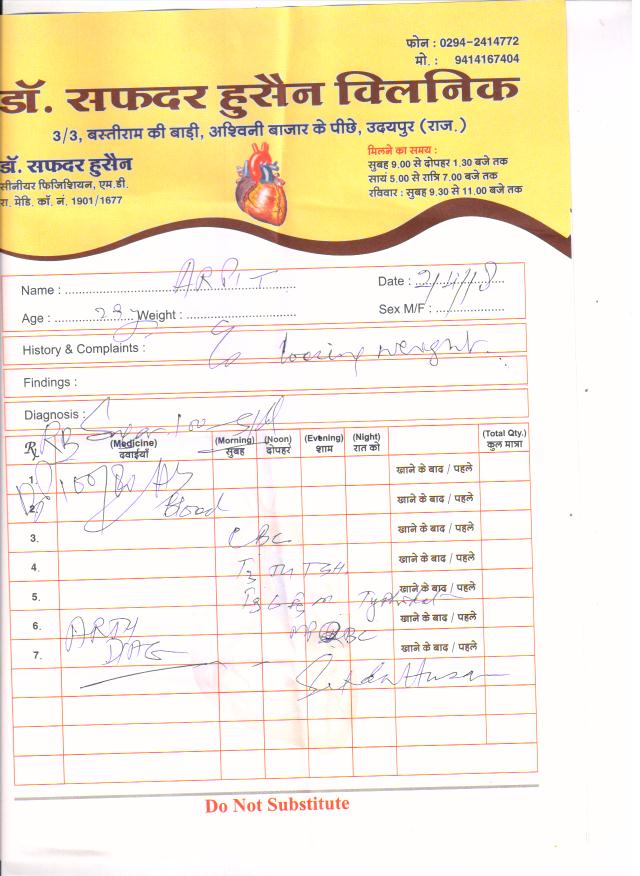 फोन : 0294-2414772
मो. : 9414167404
डॉ. सफदर हुसैन क्लिनिक
3/3, बस्तीराम की बाड़ी, अश्विनी बाजार के पीछे, उदयपुर (राज.)
डॉ. सफदर हुसैन
सीनीयर फिजिशियन, एम.डी.
रा. मेडि. कॉ. नं. 1901/1677
मिलने का समय :
सुबह 9.00 से दोपहर 1.30 बजे तक
सायं 5.00 से रात्रि 7.00 बजे तक
रविवार : सुबह 9.30 से 11.00 बजे तक
Name : ARPIT
Date : 2/4/18
Age : 23y Weight :
Sex M/F :
History & Complaints : loosing weight
Findings :
Diagnosis :
RB Sugar 100
Rx (Medicine) (Morning) (Noon) (Evening) (Night) (Total Qty.)
दवाईयाँ सुबह दोपहर शाम रात को कुल मात्रा
1. खाने के बाद / पहले
2. Blood खाने के बाद / पहले
3. CBC खाने के बाद / पहले
4. T3 T4 TSH खाने के बाद / पहले
5. खाने के बाद / पहले
6. खाने के बाद / पहले
7. खाने के बाद / पहले
Do Not Substitute